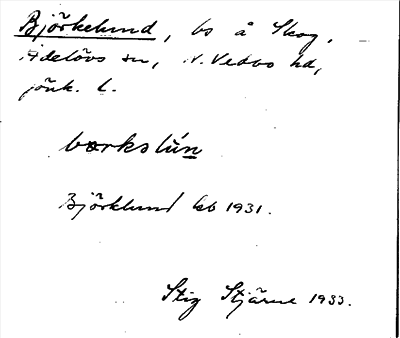 Björkelund, bs å Skog,
Adelövs sn, N. Vedbo hd,
Jönk. l.
bœrkslún
Björklund kb 1931.
Stig Stjärne 1933.